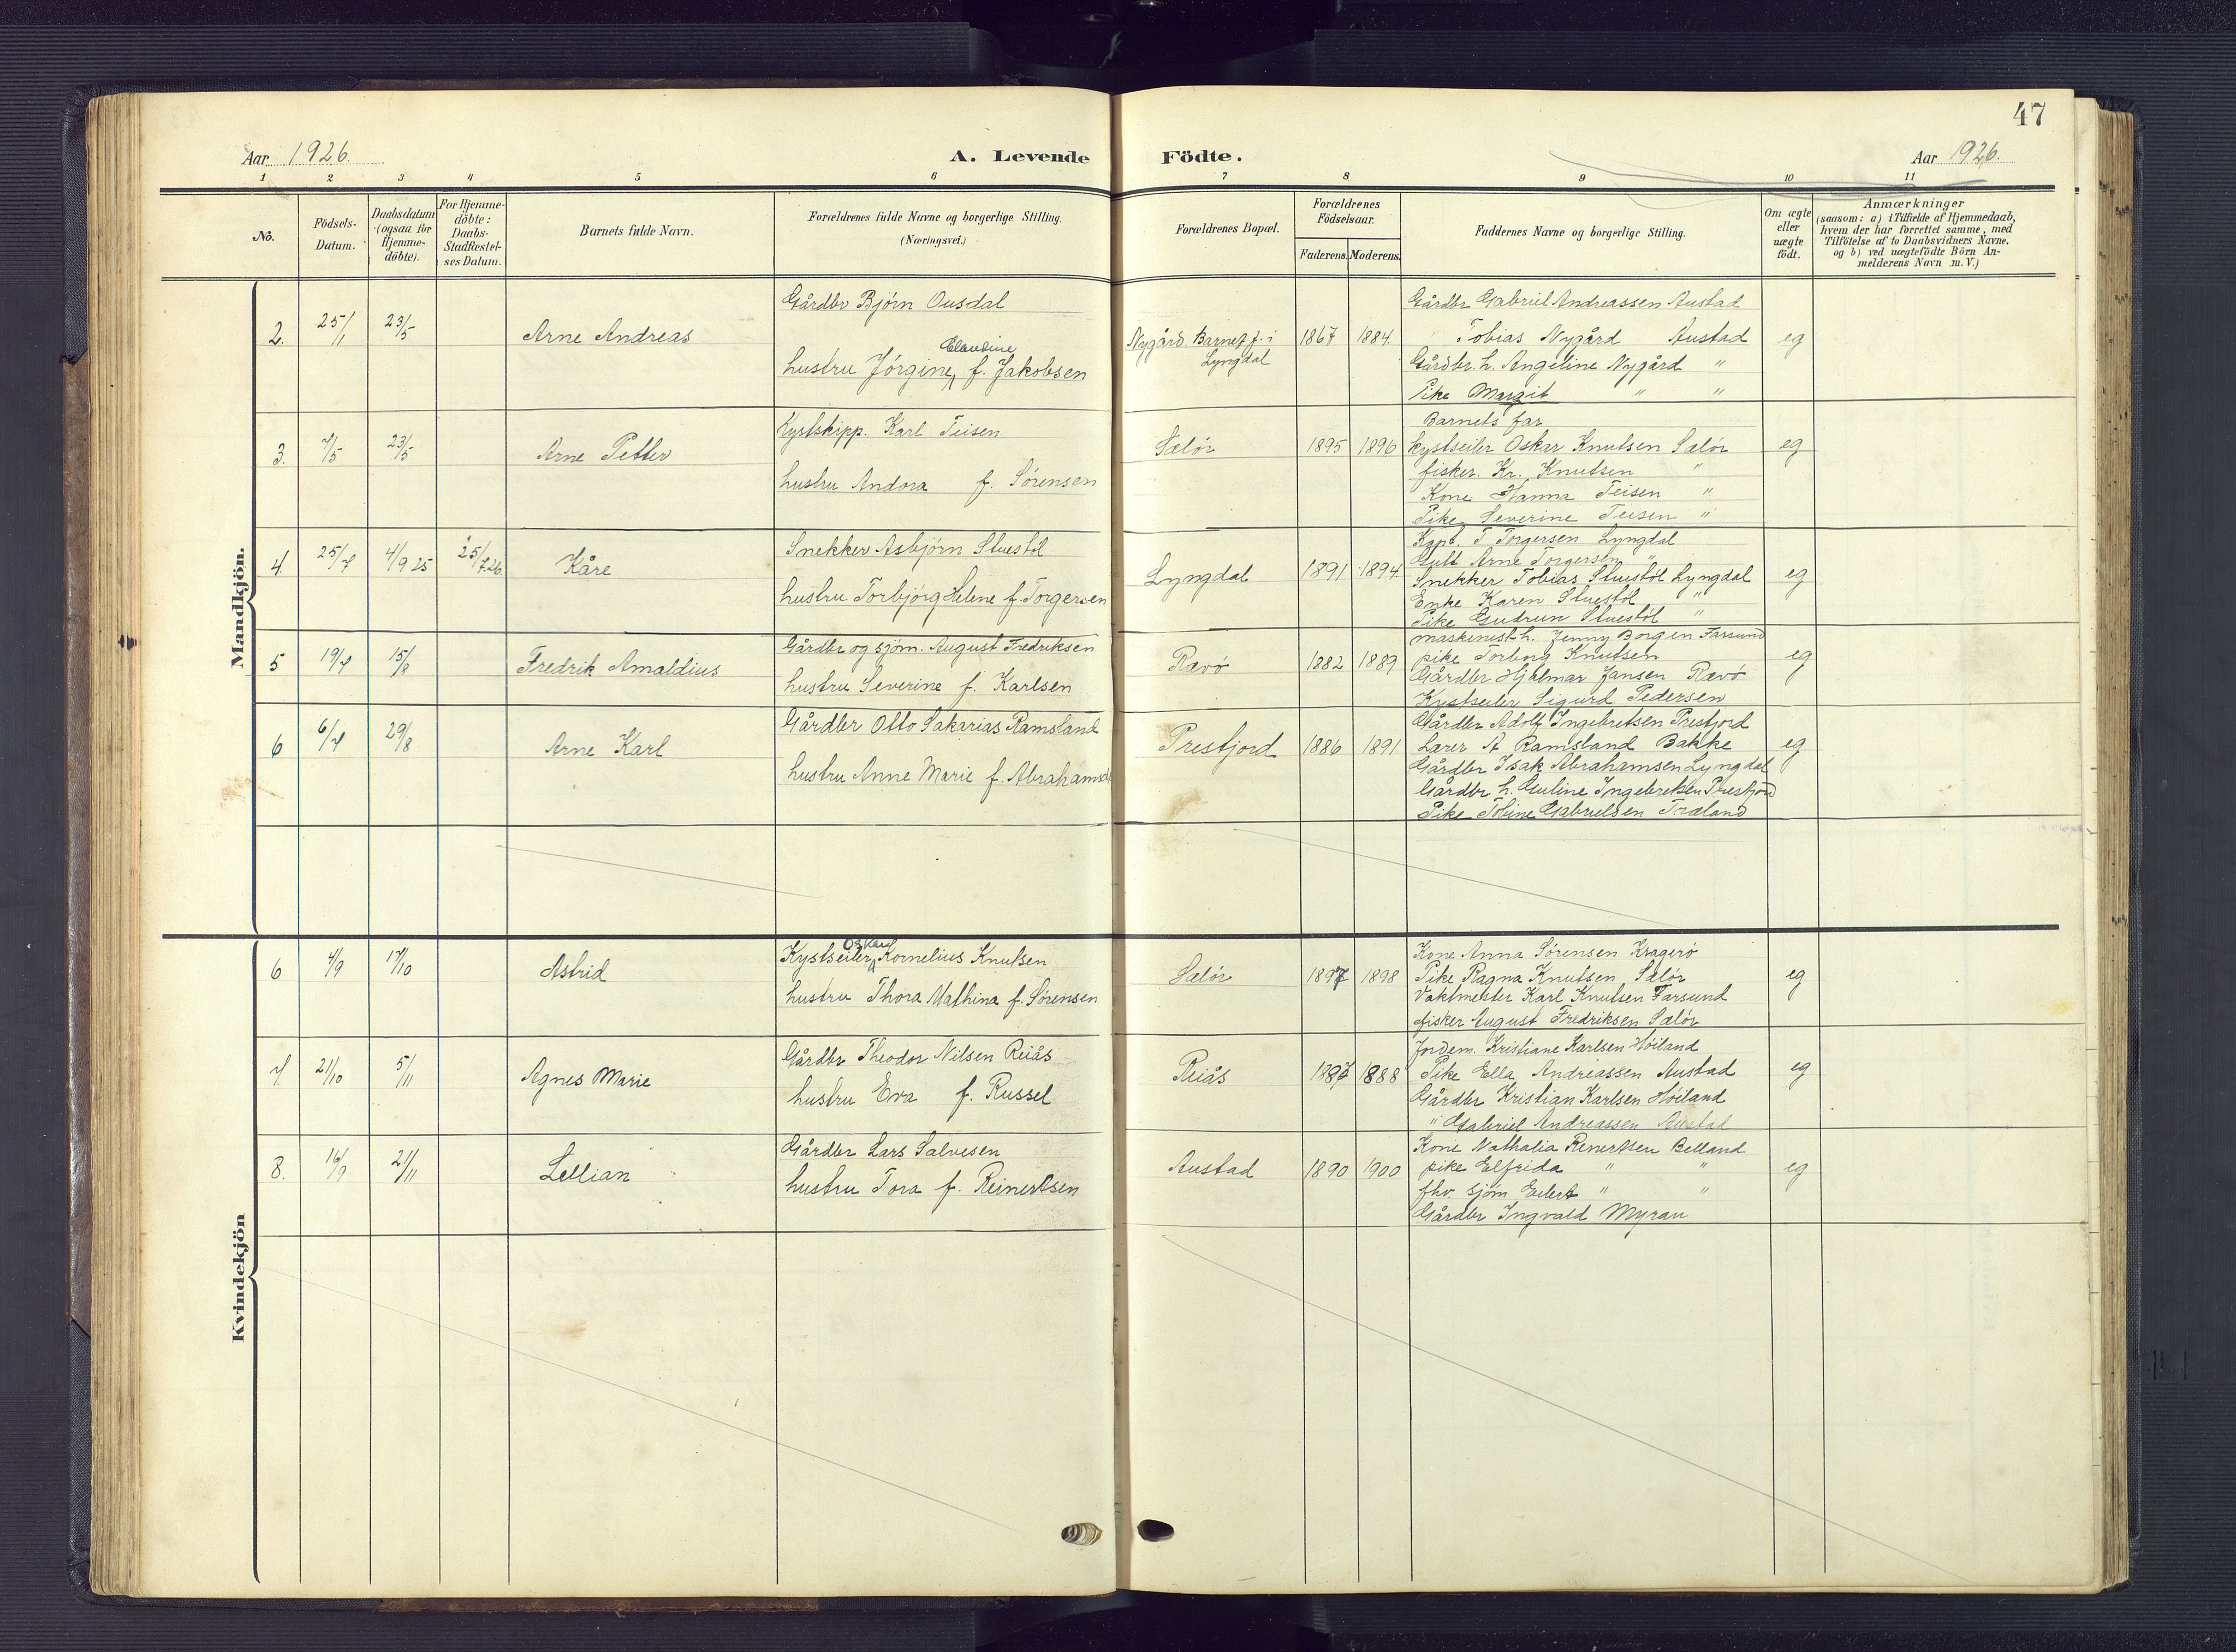 47
Aar 1926.
A. Levende Födte.
Aar 1926.
1 2 3 4 5 6 7 8 9 10 11
No.
Födsels-
Datum.
Daabsdatum
(ogsaa for
Hjemme-
döbte).
For Hjemme-
döbte:
Daabs-
Stadfæstel-
ses Datum.
Barnets fulde Navn.
Forældrenes fulde Navne og borgerlige Stilling.
(Næringsvei.)
Forældrenes Bopæl.
Forældrenes
Födselsaar.
Faderens. Moderens.
Faddernes Navne og borgerlige Stilling.
Om ægte
eller
uægte
födt.
Anmærkninger
(saasom: a) i Tilfælde af Hjemmedaab,
hvem der har forrettet samme, med
Tilföielse af to Daabsvidners Navne.
og b) ved uægtefödte Börn An-
melderens Navn m. V.)
Mandkjön.
2. 25/1 23/5 Arne Andreas
Gårdbr Bjórn Ousdal
Claudine
hustru Jórgine, f. Jakobsen
Nygård Barnet f. i
Lyngdal
1867 1884
Gårdbr Gabriel Andreassen Austad
" Tobias Nygård Austad
Gårdbr. h. Angeline Nygård "
Pike Margit " "
eg
3. 7/5 23/5 Arne Petter
Kystskipp. Karl Teisen
hustru Andora f. Sórensen
Sælór
1895 1896
Barnets far
kystseiler Oskar Knutsen Sælór
fisker. Kr. Knutsen "
Kone Hanna Teisen "
Pike Severine Teisen "
eg
4. 25/7 4/9 25 25/7.26. Kåre
Snekker Asbjórn Stuestól
hustru Torbjórg Helene f. Torgersen
Lyngdal
1891 1894
Kapt. T Torgersen Lyngdal
Gutt Arne Torgersen "
Snekker Tobias Stuestól Lyngdal
Enke Karen Stuestól "
Pike Gudrun Stuestól "
eg
5 19/7 15/8 Fredrik Arnaldius
Gårdbr og sjóm. August Fredriksen
hustru Severine f. Karlsen
Rævó
1882 1889
maskinist h. Jenny Borgen Farsund
pike Torborg Knutsen
Gårdbr Hjalmar Jansen Rævó
Kystseiler Sigurd Pedersen
eg
6 6/7 29/8 Arne Karl
Gårdbr Otto Sakarias Ramsland
hustru Anne Marie f. Abrahamsen
Prestjord
1886 1891
Gårdbr Adolf Ingebretsen Prestjord
Lærer A Ramsland Bakke
Gårdbr Isak Abrahamsen Lyngdal
Gårdbr h. Guline Ingebretsen Prestjord
Pike Tobine Gabrielsen Træland
eg
Kvindekjön
6 4/9 17/10 Astrid
Oskar
Kystseiler, Kornelius Knutsen
hustru Thora Mathina f. Sórensen
Sælór
1897 1898
Kone Anna Sórensen Kragerö
Pike Ragna Knutsen Sælór
Vaktmester Karl Knutsen Farsund
fisker August Fredriksen Sælór
eg
7. 21/10 5/11 Agnes Marie
Gårdbr Theodor Nilsen Reiås
hustru Eva f. Russel
Reiås
1887 1888
Jordem. Kristiane Karlsen Hóiland
Pike Ella Andreassen Austad
Gårdbr Kristian Karlsen Hóiland
" Gabriel Andreassen Austad
eg
8. 16/9 21/11 Lellian
Gårdbr Lars Salvesen
hustru Tora f. Reinertsen
Austad
1890 1900
Kone Nathalia Reinertsen Belland
pike Elfrida " "
fhv. sjóm Eilert " "
Gårdbr Ingvald Myran
eg